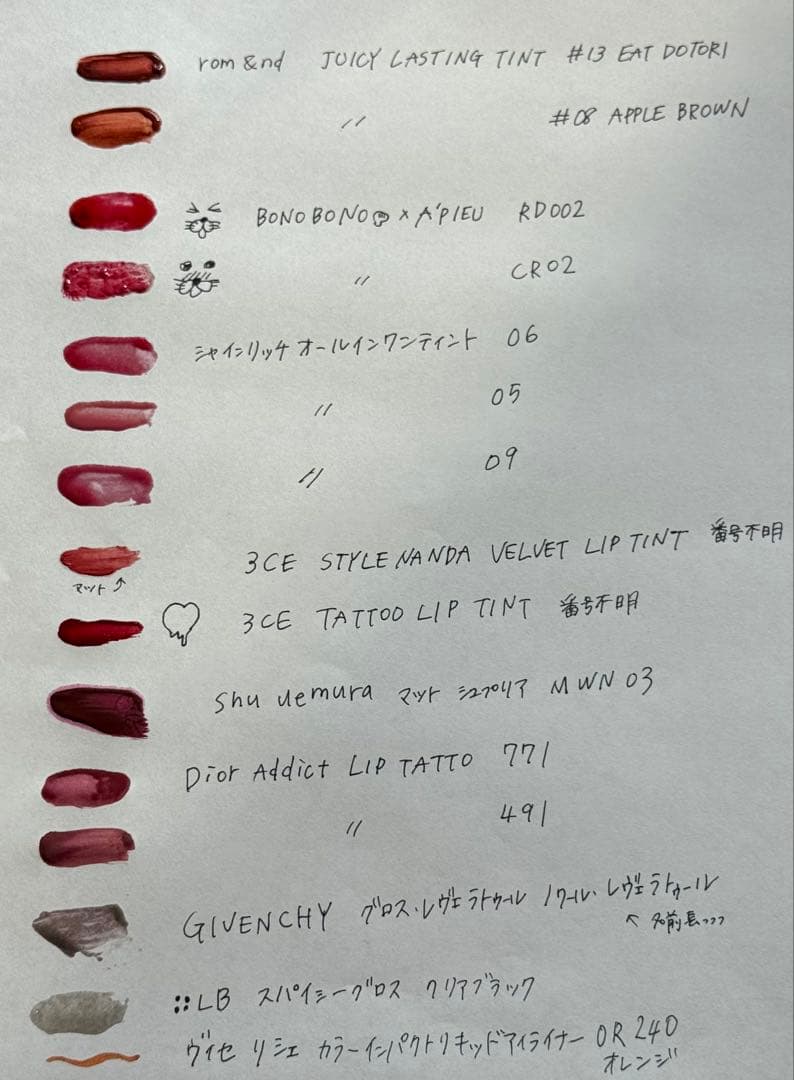 rom&nd JUICY LASTING TINT #13 EAT DOTORI
〃 #08 APPLE BROWN
BONOBONO × A'PIEU RD002
〃 CR02
シャインリッチ オールインワンティント 06
〃 05
〃 09
3CE STYLENANDA VELVET LIP TINT 番号不明
マット↑
3CE TATTOO LIP TINT 番号不明
Shu uemura マット シュプリア M WN 03
Dior Addict LIP TATTO 771
〃 491
GIVENCHY グロス・レヴェラトゥール ノワール・レヴェラトゥール
↖ 名前長っっっ
::LB スパイシーグロス クリアブラック
ヴィセ リシェ カラーインパクトリキッドアイライナー OR240
オレンジ